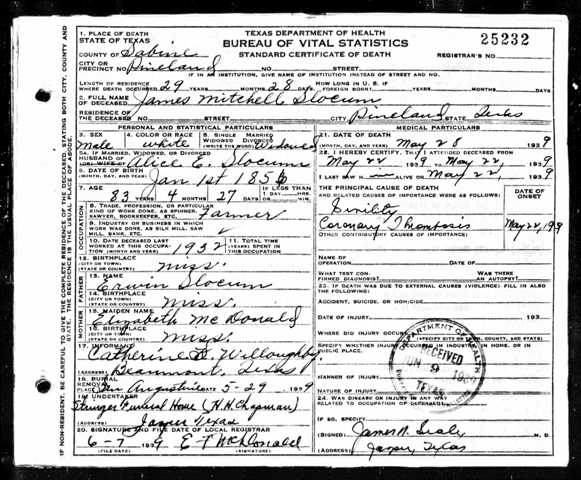 TEXAS DEPARTMENT OF HEALTH
BUREAU OF VITAL STATISTICS
STANDARD CERTIFICATE OF DEATH
25232
REGISTRAR'S NO.
1. PLACE OF DEATH
STATE OF TEXAS
COUNTY OF Sabine
CITY OR PRECINCT NO. Pineland NO. STREET
IF IN AN INSTITUTION, GIVE NAME OF INSTITUTION INSTEAD OF STREET AND NO.
LENGTH OF RESIDENCE WHERE DEATH OCCURRED 29 YEARS MONTHS 28 DAYS. HOW LONG IN U.S. IF
2. FULL NAME OF DECEASED James Mitchell Slocum
RESIDENCE OF THE DECEASED NO. STREET CITY Pineland STATE Texas
PERSONAL AND STATISTICAL PARTICULARS
3. SEX Male
4. COLOR OR RACE white
5. SINGLE MARRIED WIDOWED DIVORCED Widowed
5A. IF MARRIED, WIDOWED OR DIVORCED
HUSBAND OF
OR WIFE OF Alice C. Slocum
6. DATE OF BIRTH Jan 1st 1856
7. AGE 83 YEARS 4 MONTHS 27 DAYS IF LESS THAN 1 DAY HRS. MIN.
8. TRADE, PROFESSION, OR PARTICULAR KIND OF WORK DONE, AS SPINNER, SAWYER, BOOKKEEPER, ETC. Farmer
9. INDUSTRY OR BUSINESS IN WHICH WORK WAS DONE, AS SILK MILL, SAW MILL, BANK, ETC.
10. DATE DECEASED LAST WORKED AT THIS OCCUPATION (MONTH AND YEAR) 1932
11. TOTAL TIME (YEARS) SPENT IN THIS OCCUPATION
12. BIRTHPLACE (CITY OR TOWN) (STATE OR COUNTRY) Miss.
FATHER
13. NAME Erwin Slocum
14. BIRTHPLACE (CITY OR TOWN) (STATE OR COUNTRY) Miss.
MOTHER
15. MAIDEN NAME Elizabeth McDonald
16. BIRTHPLACE (CITY OR TOWN) (STATE OR COUNTRY) Miss.
17. INFORMANT Catherine Willoughby
(ADDRESS) Beaumont, Texas
18. BURIAL REMOVAL
PLACE San Augustine DATE 5-29 1939
19. UNDERTAKER Stringer Funeral Home (H.H. Chapman)
(ADDRESS) Jasper Texas
20. SIGNATURE AND FILE DATE OF LOCAL REGISTRAR
6-7 1939 E T McDonald
(FILE DATE) (SIGNATURE)
MEDICAL PARTICULARS
21. DATE OF DEATH
(MONTH, DAY AND YEAR) May 28 1939
22. I HEREBY CERTIFY, THAT I ATTENDED DECEASED FROM
May 22 1939 TO May 22, 1939
I LAST SAW H im ALIVE ON May 22, 1939
THE PRINCIPAL CAUSE OF DEATH
AND RELATED CAUSES OF IMPORTANCE WERE AS FOLLOWS:
DATE OF ONSET
Senility
Coronary Thombosis May 22, 1939
OTHER CONTRIBUTORY CAUSES OF IMPORTANCE:
NAME OF OPERATION DATE OF
WHAT TEST CONFIRMED DIAGNOSIS? WAS THERE AN AUTOPSY
23. IF DEATH WAS DUE TO EXTERNAL CAUSES (VIOLENCE) FILL IN ALSO
ACCIDENT, SUICIDE, OR HOMICIDE
DATE OF INJURY 193
WHERE DID INJURY OCCUR
SPECIFY WHETHER INJURY OCCURRED IN INDUSTRY, IN HOME, OR IN PUBLIC PLACE.
MANNER OF INJURY
NATURE OF INJURY
24. WAS DISEASE OR INJURY IN ANY WAY RELATED TO OCCUPATION OF DECEASED
IF SO, SPECIFY
(SIGNED) M.D.
(ADDRESS) Jasper, Texas
DEPARTMENT OF HEALTH
RECEIVED
JUN 9 1939
TEXAS